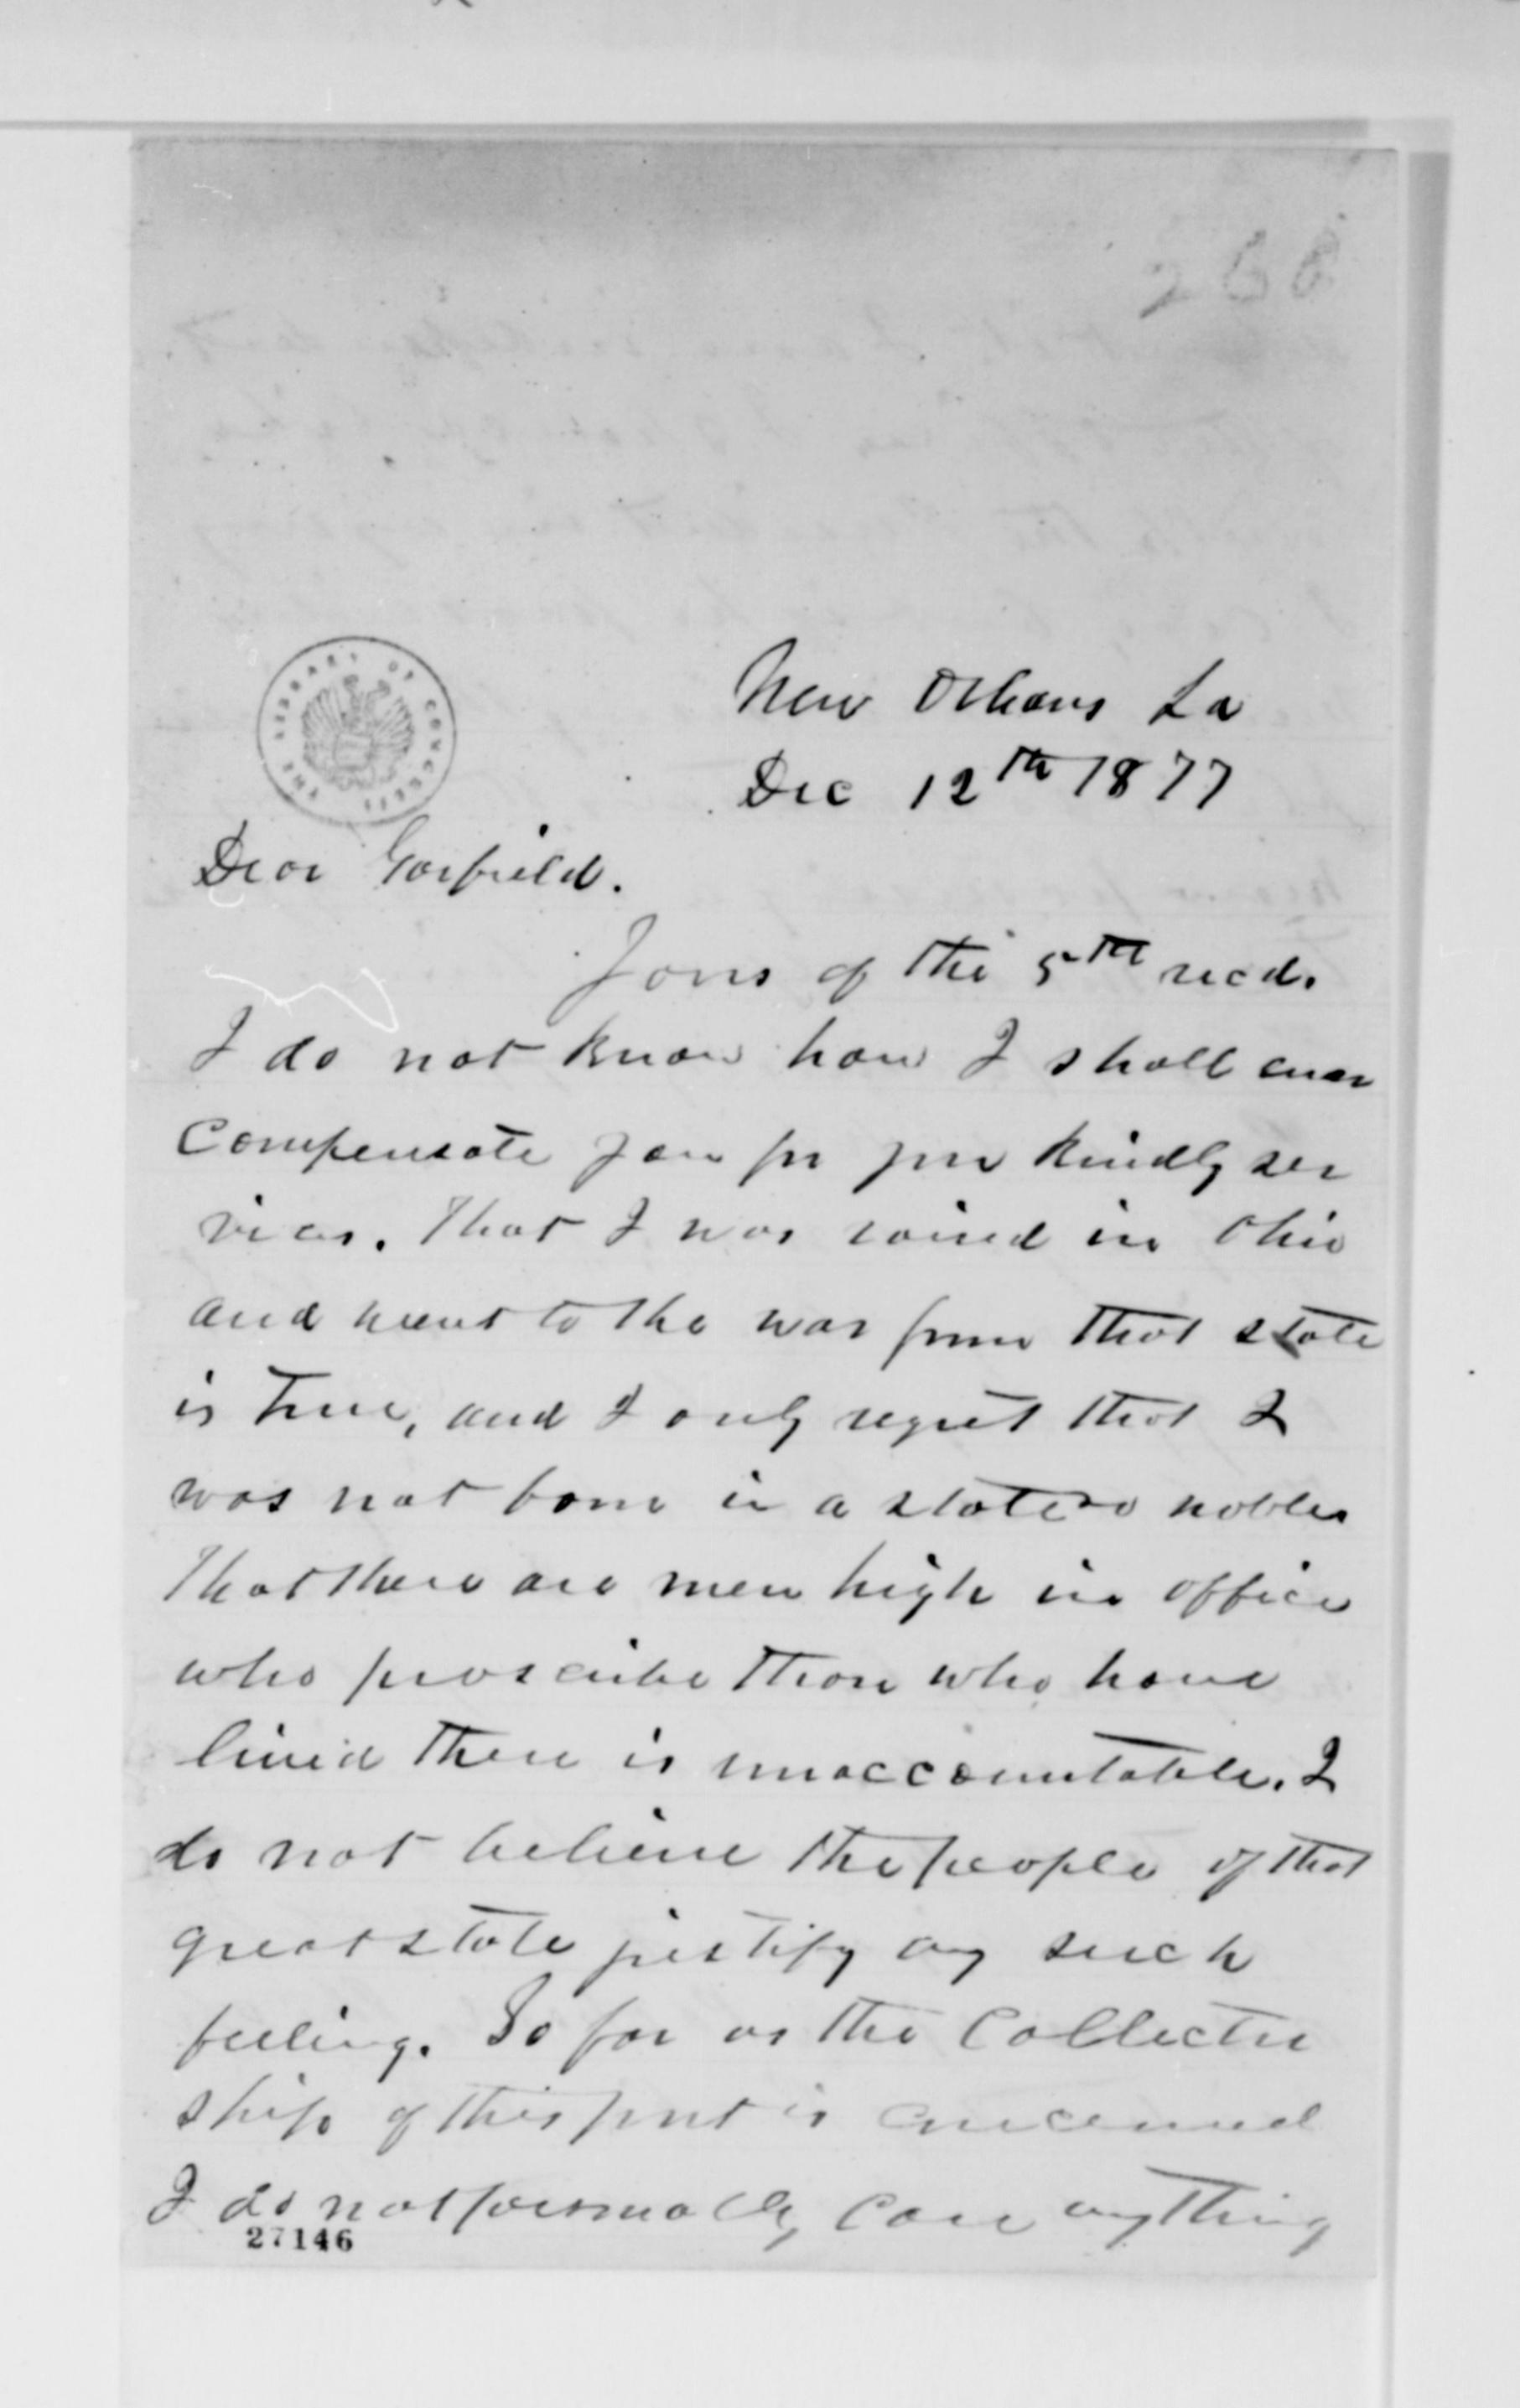 260
THE LIBRARY OF CONGRESS
New Orleans La
Dec 12th 1877
Dear Garfield.
Yours of the 5th recd.
I do not know how I shall ever
compensate you for your kindly ser
vices. That I was raised in Ohio
and went to the war from that state
is true, and I only regret that I
was not born in a state so noble.
That there are men high in office
who proscribe those who have
lived there is unaccountable. I
do not believe the people of that
great state justify any such
feeling. So far as the Collector
ship of this port is concerned
I do not personally care anything
27146